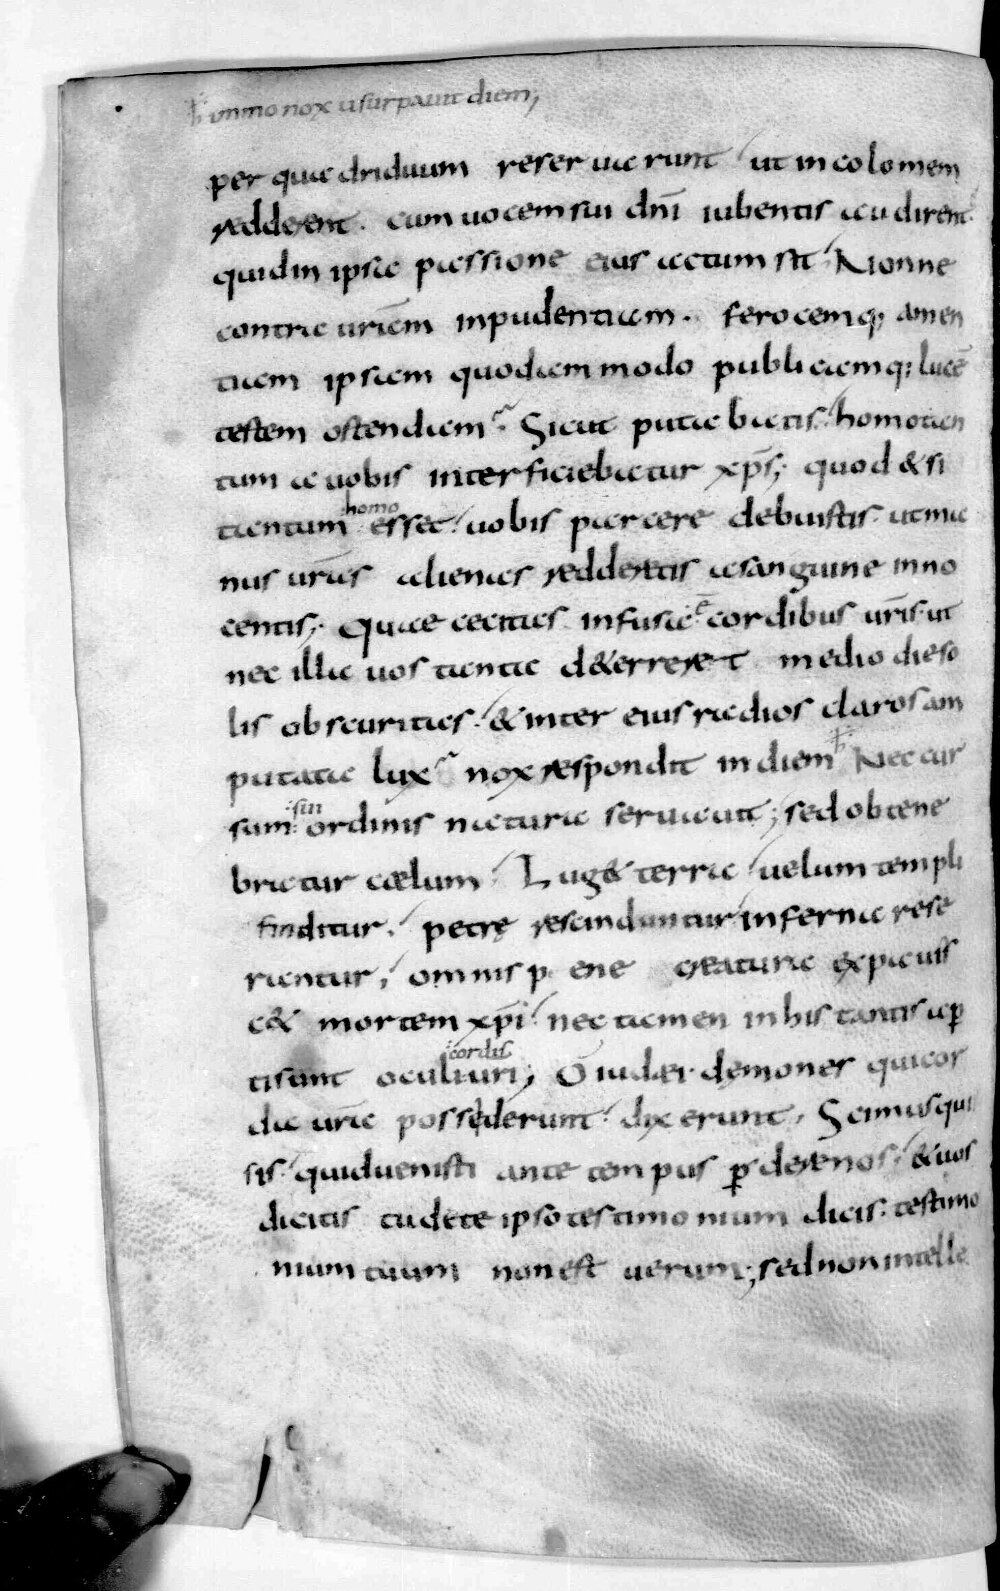 immo nox usurpauit diem;
per quadriduum reseruarunt ut incolomem
redderent. cum uocem sui dn̄i iubentis audirent.
quid in ipsa passione eius actum sit. Nonne
contra ur̄am inpudentiam. ferocemq; amen
tiam ipsam quodammodo publicamq; lucē
testem ostendam. Sicut putabatis. homo tan
tum a uobis interficiebatur xp̄s; quod & si
tantum homo esset. uobis parcere debuistis. ut ma
nus ur̄as alienas redderetis a sanguine inno
centis; Quae cecitas infusa ē cordibus ur̄is. ut
nec illa uos tanta d&erreret medio die so
lis obscuritas. & inter eius radios claros am
putata lux nox respondit in diem Nec cur
sum sui ordinis natura seruauit; sed obtene
bratur cælum. Lug& terra uelum templi
finditur. petrę rescinduntur inferna rese
rantur, omnis pene creatura expauiss
c& mortem xp̄i. nec tamen in his tantis ap̄
ti sunt oculi cordis uri; O iudæi. dęmones qui cor
da ur̄a possederunt. dixerunt. Scimus qui
sis. quid uenisti ante tempus p̄derenos. & uos
dicitis tu de te ipso testimonium dicis. testimo
nium tuum non est uerum; sed non intelle